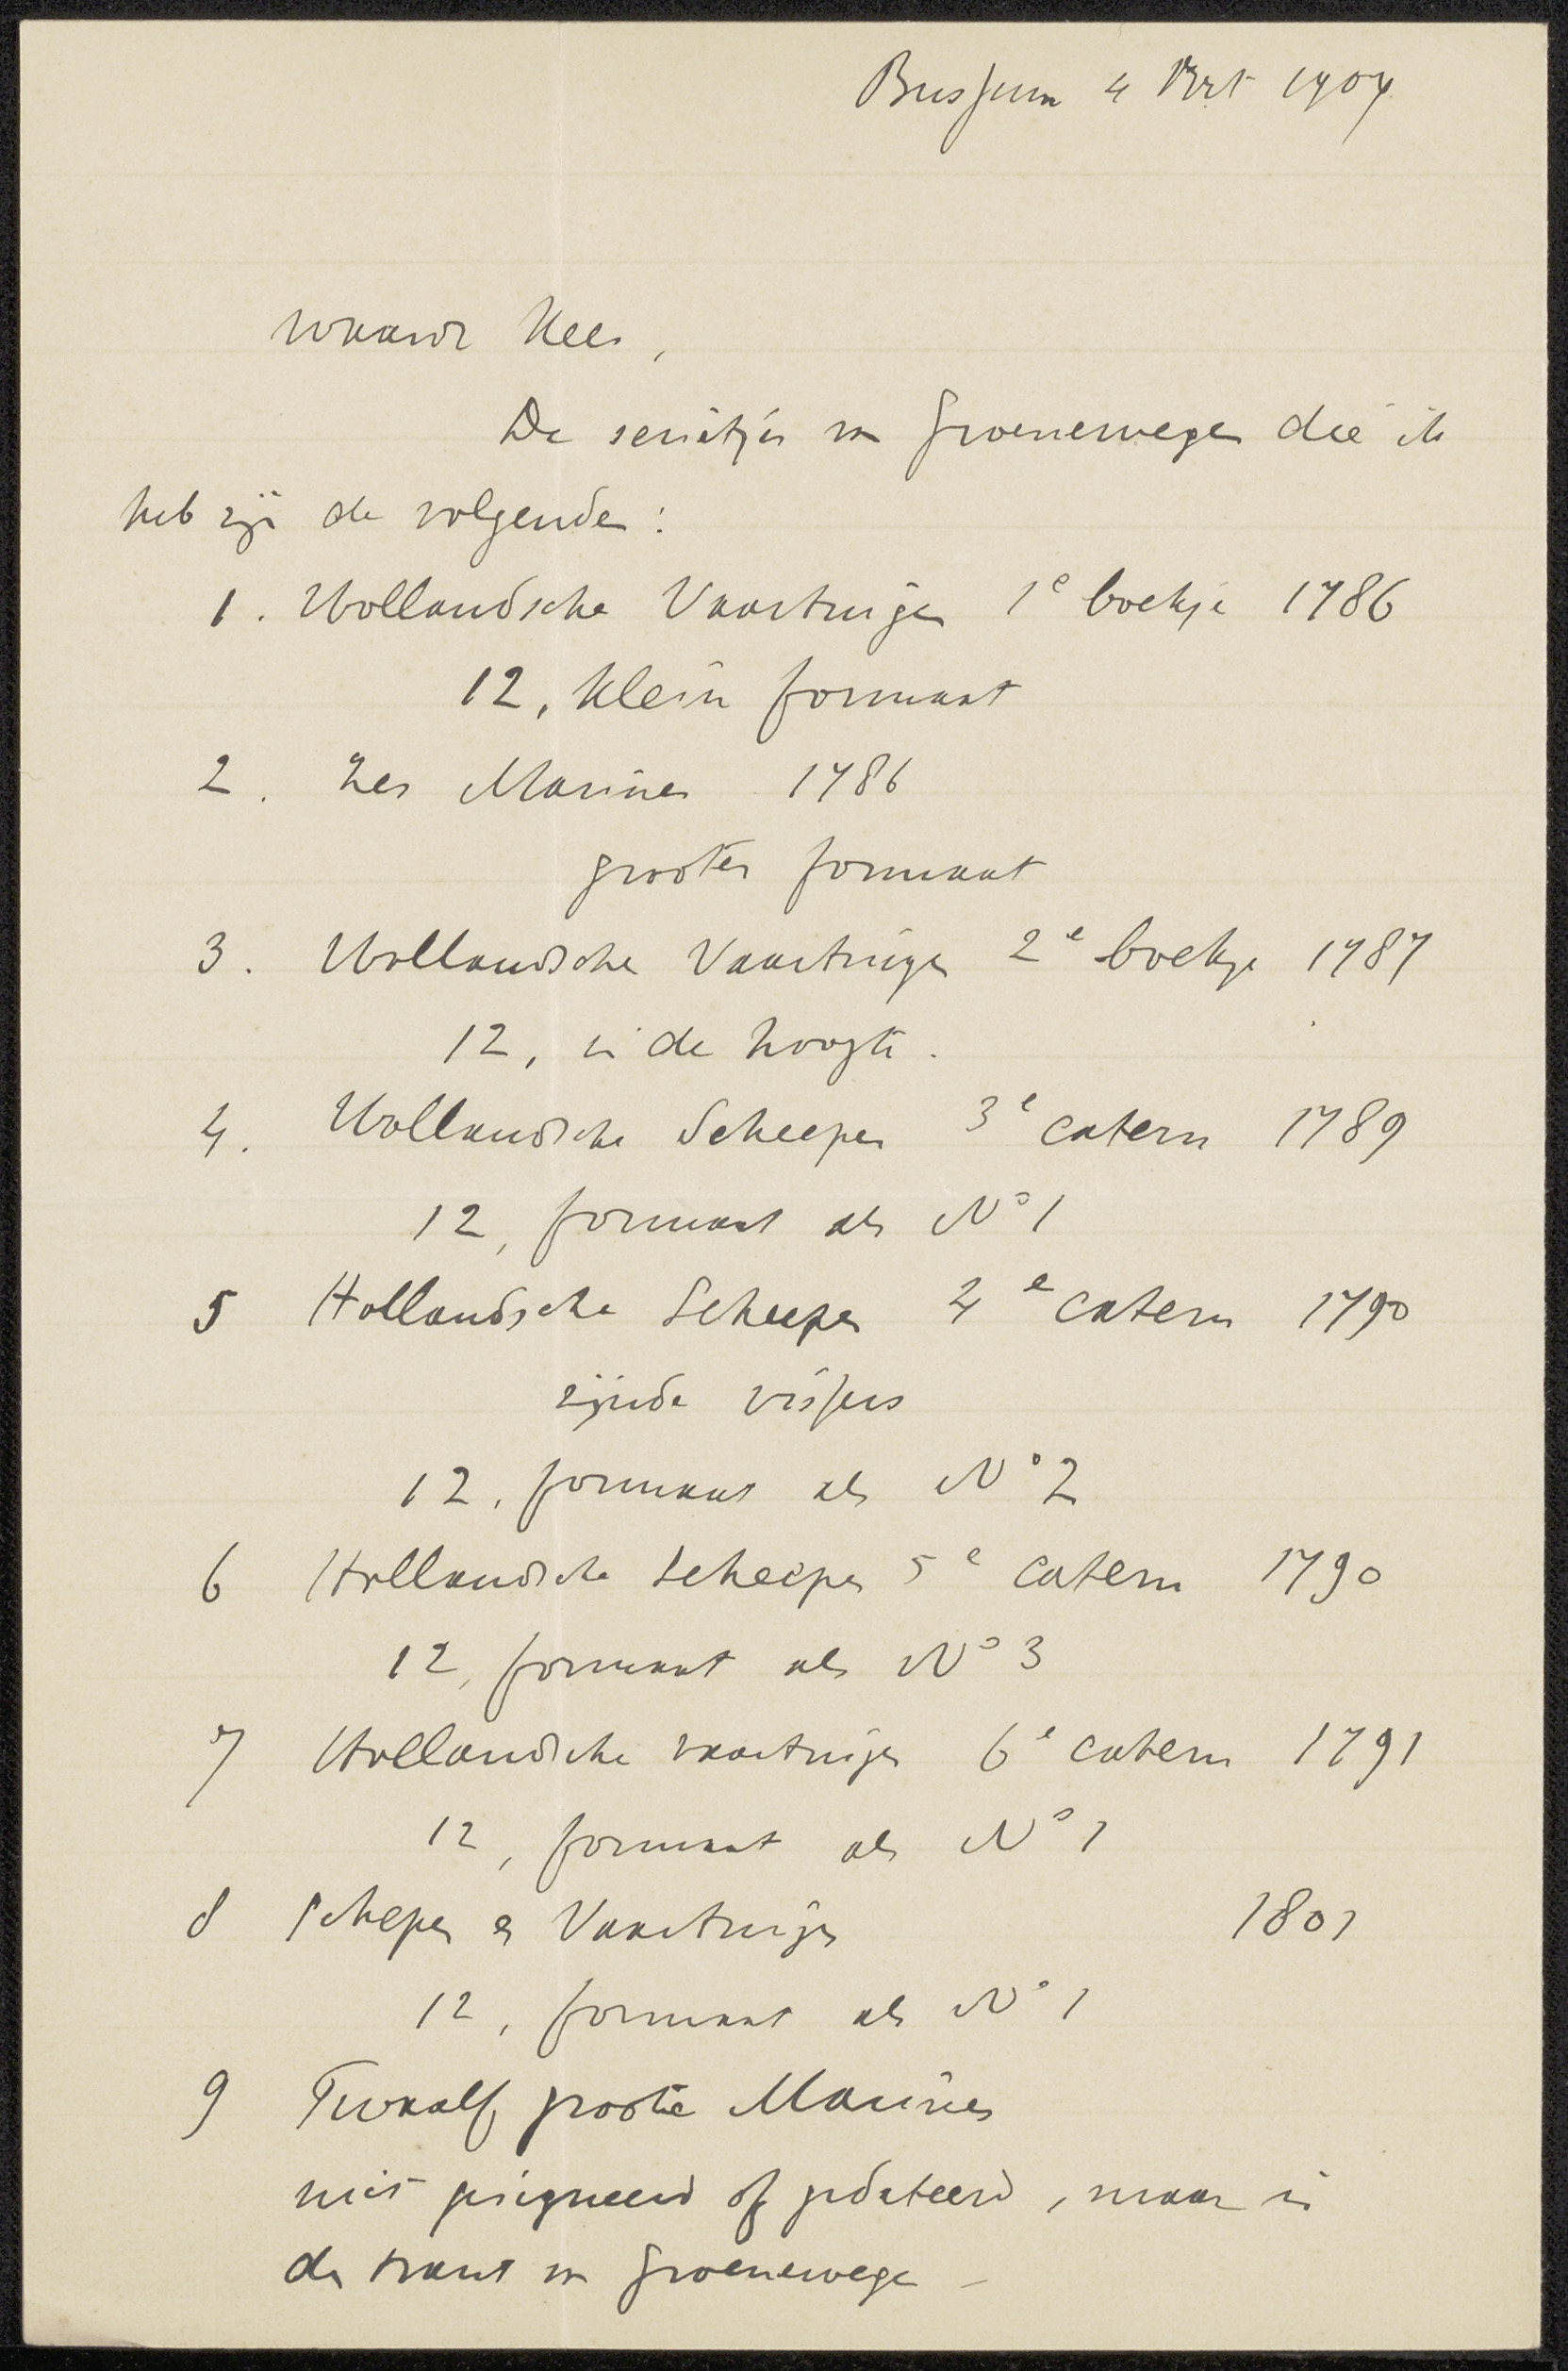 Bussum 4 Oct 1907
Waarde Kees,
De serietjes van Groenewegen die ik
heb zijn de volgende:
1. Hollandsche Vaartuigen 1e boekje 1786
12, klein formaat
2. Zes Marines 1786
grooter formaat
3. Hollandsche Vaartuigen 2e boekje 1787
12, in de hoogte.
4. Hollandsche Scheepen 3e catern 1789
12, formaat als No 1
5 Hollandsche Scheepen 4e catern 1790
zijnde vissers
12, formaat als No 2
6 Hollandsche Scheepen 5e catern 1790
12, formaat als No 3
7 Hollandsche vaartuigen 6e catern 1791
12, formaat als No 1
8 Schepen en Vaartuigen 1801
12, formaat als No 1
9 Twaalf groote Marines
niet gesigneerd of gedateerd, maar in
de trant van Groenewegen –